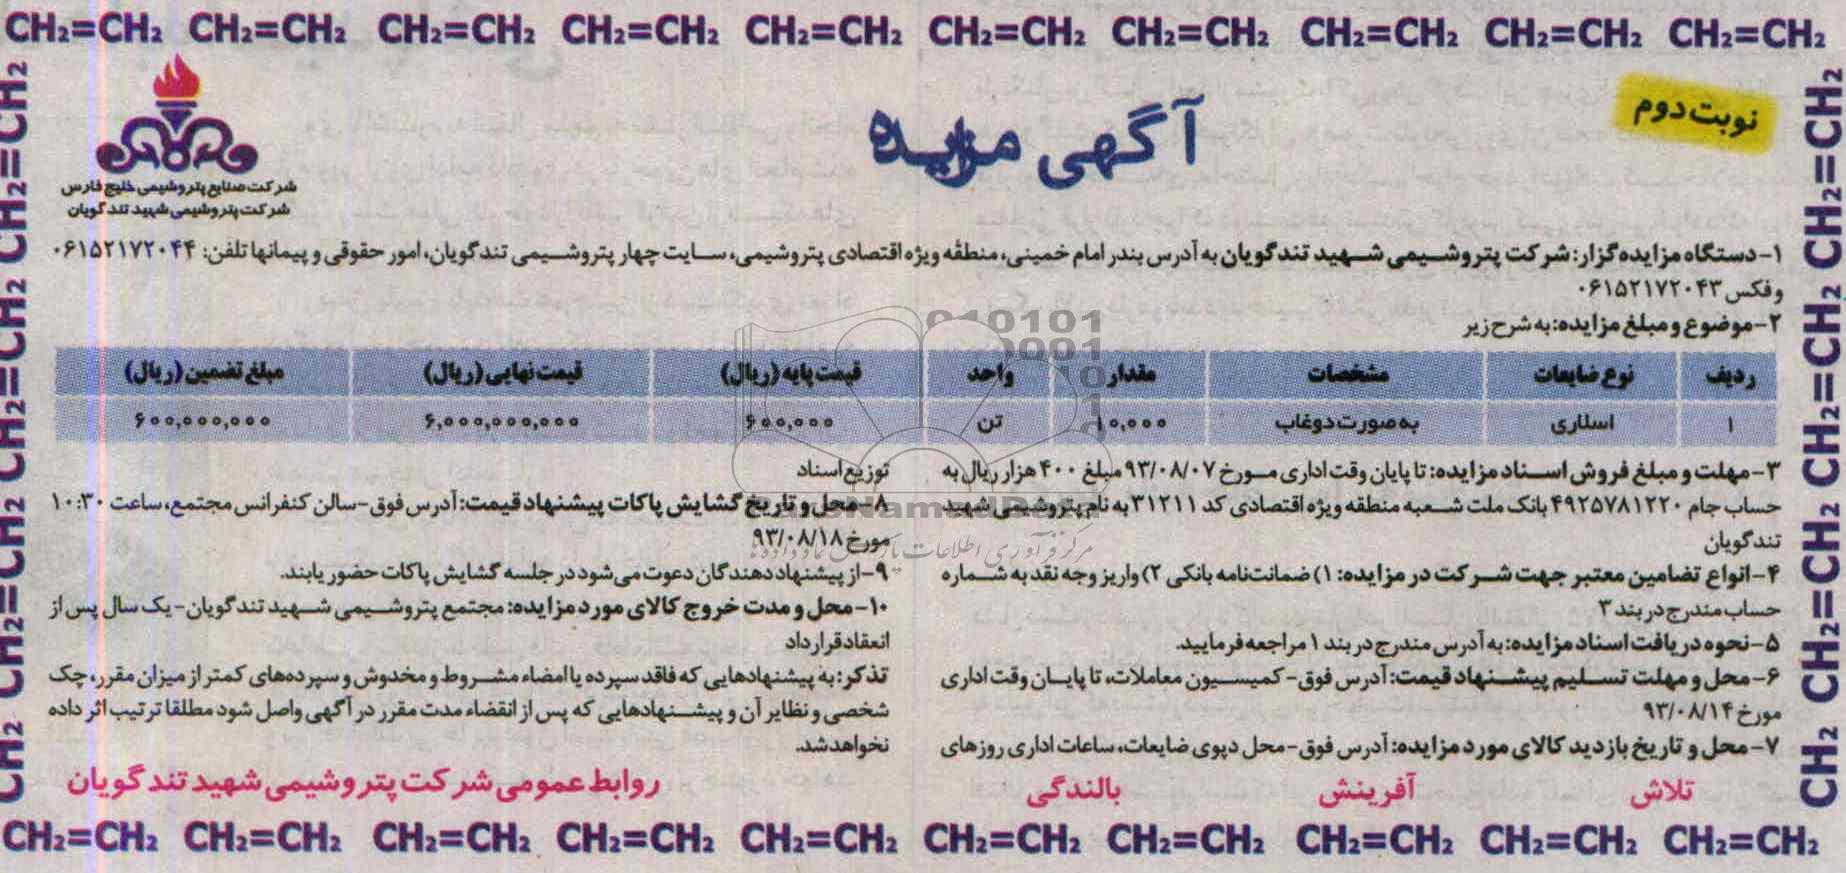 CH₂=CH₂ CH₂=CH₂ CH₂=CH₂ CH₂=CH₂ CH₂=CH₂ CH₂=CH₂ CH₂=CH₂ CH₂=CH₂ CH₂=CH₂ CH₂=CH₂
نوبت دوم
آگهی مزایده
شرکت صنایع پتروشیمی خلیج فارس
شرکت پتروشیمی شهید تندگویان
۱-دستگاه مزایده‌گزار: شرکت پتروشیمی شهید تندگویان به آدرس بندر امام خمینی، منطقه ویژه اقتصادی پتروشیمی، سایت چهار پتروشیمی تندگویان، امور حقوقی و پیمانها تلفن: ۰۶۱۵۲۱۷۲۰۴۴
و فکس ۰۶۱۵۲۱۷۲۰۴۳
۲-موضوع و مبلغ مزایده: به شرح زیر
ردیف نوع ضایعات مشخصات مقدار واحد قیمت پایه (ریال) قیمت نهایی (ریال) مبلغ تضمین (ریال)
۱ اسلاری به صورت دوغاب ۱۰,۰۰۰ تن ۶۰۰,۰۰۰ ۶,۰۰۰,۰۰۰,۰۰۰ ۶۰۰,۰۰۰,۰۰۰
۳-مهلت و مبلغ فروش اسناد مزایده: تا پایان وقت اداری مورخ ۹۳/۰۸/۰۷ مبلغ ۴۰۰ هزار ریال به
حساب جام ۴۹۲۵۷۸۱۲۲۰ بانک ملت شعبه منطقه ویژه اقتصادی کد ۳۱۲۱۱ به نام پتروشیمی شهید
تندگویان
۴-انواع تضامین معتبر جهت شرکت در مزایده: ۱) ضمانت‌نامه بانکی ۲) واریز وجه نقد به شماره
حساب مندرج در بند ۳
۵-نحوه دریافت اسناد مزایده: به آدرس مندرج در بند ۱ مراجعه فرمایید.
۶-محل و مهلت تسلیم پیشنهاد قیمت: آدرس فوق-کمیسیون معاملات، تا پایان وقت اداری
مورخ ۹۳/۰۸/۱۴
۷-محل و تاریخ بازدید کالای مورد مزایده: آدرس فوق-محل دپوی ضایعات، ساعات اداری روزهای
توزیع اسناد
۸-محل و تاریخ گشایش پاکات پیشنهاد قیمت: آدرس فوق-سالن کنفرانس مجتمع، ساعت ۱۰:۳۰
مورخ ۹۳/۰۸/۱۸
۹-از پیشنهاددهندگان دعوت می‌شود در جلسه گشایش پاکات حضور یابند.
۱۰-محل و مدت خروج کالای مورد مزایده: مجتمع پتروشیمی شهید تندگویان-یک سال پس از
انعقاد قرارداد
تذکر: به پیشنهادهایی که فاقد سپرده یا امضاء مشروط و مخدوش و سپرده‌های کمتر از میزان مقرر، چک
شخصی و نظایر آن و پیشنهادهایی که پس از انقضاء مدت مقرر در آگهی واصل شود مطلقا ترتیب اثر داده
نخواهد شد.
تلاش آفرینش بالندگی
روابط عمومی شرکت پتروشیمی شهید تندگویان
CH₂=CH₂ CH₂=CH₂ CH₂=CH₂ CH₂=CH₂ CH₂=CH₂ CH₂=CH₂ CH₂=CH₂ CH₂=CH₂ CH₂=CH₂ CH₂=CH₂
CH₂=CH₂ CH₂=CH₂ CH₂=CH₂ CH₂=CH₂
CH₂=CH₂ CH₂=CH₂ CH₂=CH₂ CH₂=CH₂